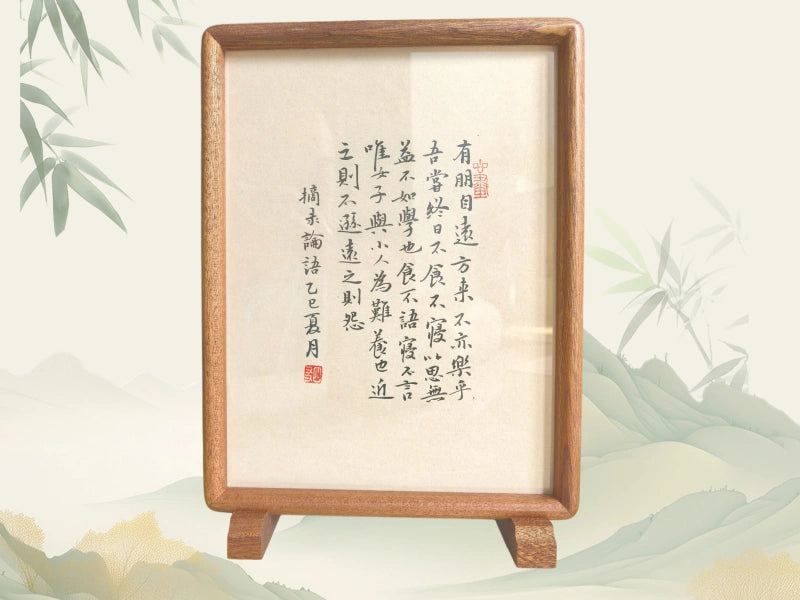 有朋自遠方来不亦樂乎
吾嘗終日不食不寢以思無
益不如學也食不語寢不言
唯女子與小人為難養也近
之則不遜遠之則怨
摘录論語乙巳夏月